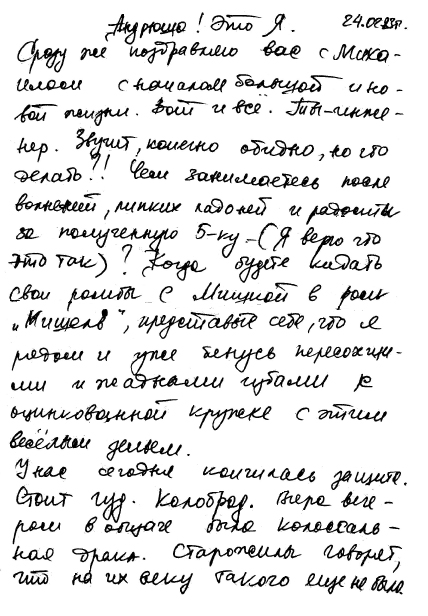 Андрюша! Это Я. 24.02.83г.
Сразу же поздравляю вас с Миха-
илом с началом большой и но-
вой жизни. Вот и всё. Ты-инже-
нер. Звучит, конечно обидно, но что
делать?!! Чем занимаетесь после
волнений, липких ладоней и радости
за полученную 5-ку-(Я верю что
это так)? Когда будете кидать
свои ромбы с Мишкой в
"Мишель", представьте себе, что я
рядом и уже тянусь пересохши-
ми и жадными губами к
оцинкованной кружке с этим
весёлым зельем.
У нас сегодня кончилась защита.
Стоит гуд. Колоброд. Вчера вече-
ром в общаге была колоссаль-
ная драка. Старожилы говорят,
что на их веку такого еще не было